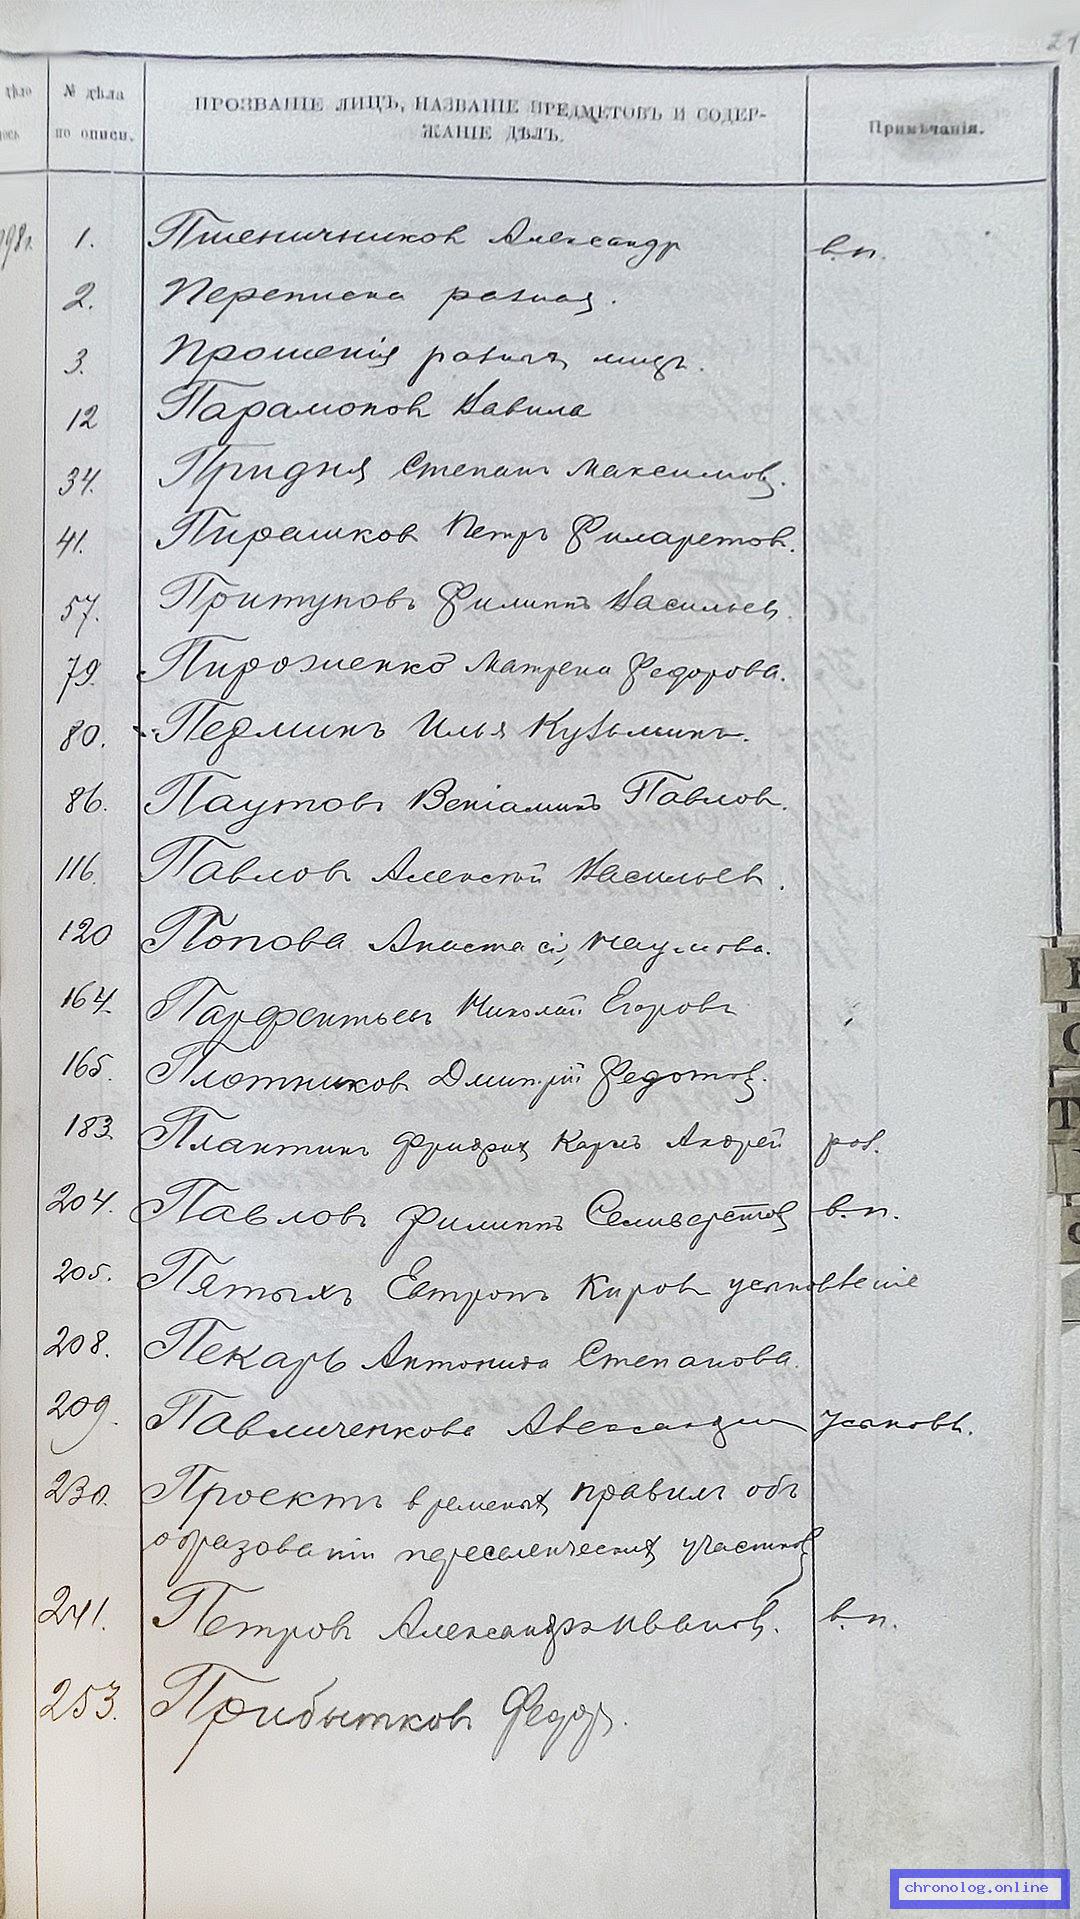 21
дѣло
№ дѣла
по описи.
ПРОЗВАНІЕ ЛИЦЪ, НАЗВАНІЕ ПРЕДМЕТОВЪ И СОДЕР-
ЖАНІЕ ДѢЛЪ.
Примѣчанія.
1. Пшеничников Александр в.п.
2. Переписка разная.
3. Прошенія разныхъ лицъ.
12 Парамонов Вавила
34. Придня Степанъ Максимов.
41. Пирашков Петръ Филаретов.
57. Притуповъ Филиппъ Васильев.
79. Пироженко Матрена Федорова.
80. Пермикъ Илья Кузьминъ.
86. Паутовъ Веніаминъ Павлов.
116. Павловъ Алексѣй Васильев.
120 Попова Анастасія Наумова.
164. Парфентьевъ Николай Егоровъ
165. Плотников Дмитрій Федотов.
183. Плактинъ Фридрих Карлъ Андрей ров.
204. Павловъ Филиппъ Селиверстов в.п.
205. Пятыхъ Евтропъ Киров усыновленіе
208. Пекарь Антонида Степанова
209. Павличенкова Александ усыновл.
230. Проектъ временных правилъ объ
образованіи переселенческих участков
241. Петровъ Александръ Иванов. в.п.
253. Прибытковъ Федоръ.
chronolog.online